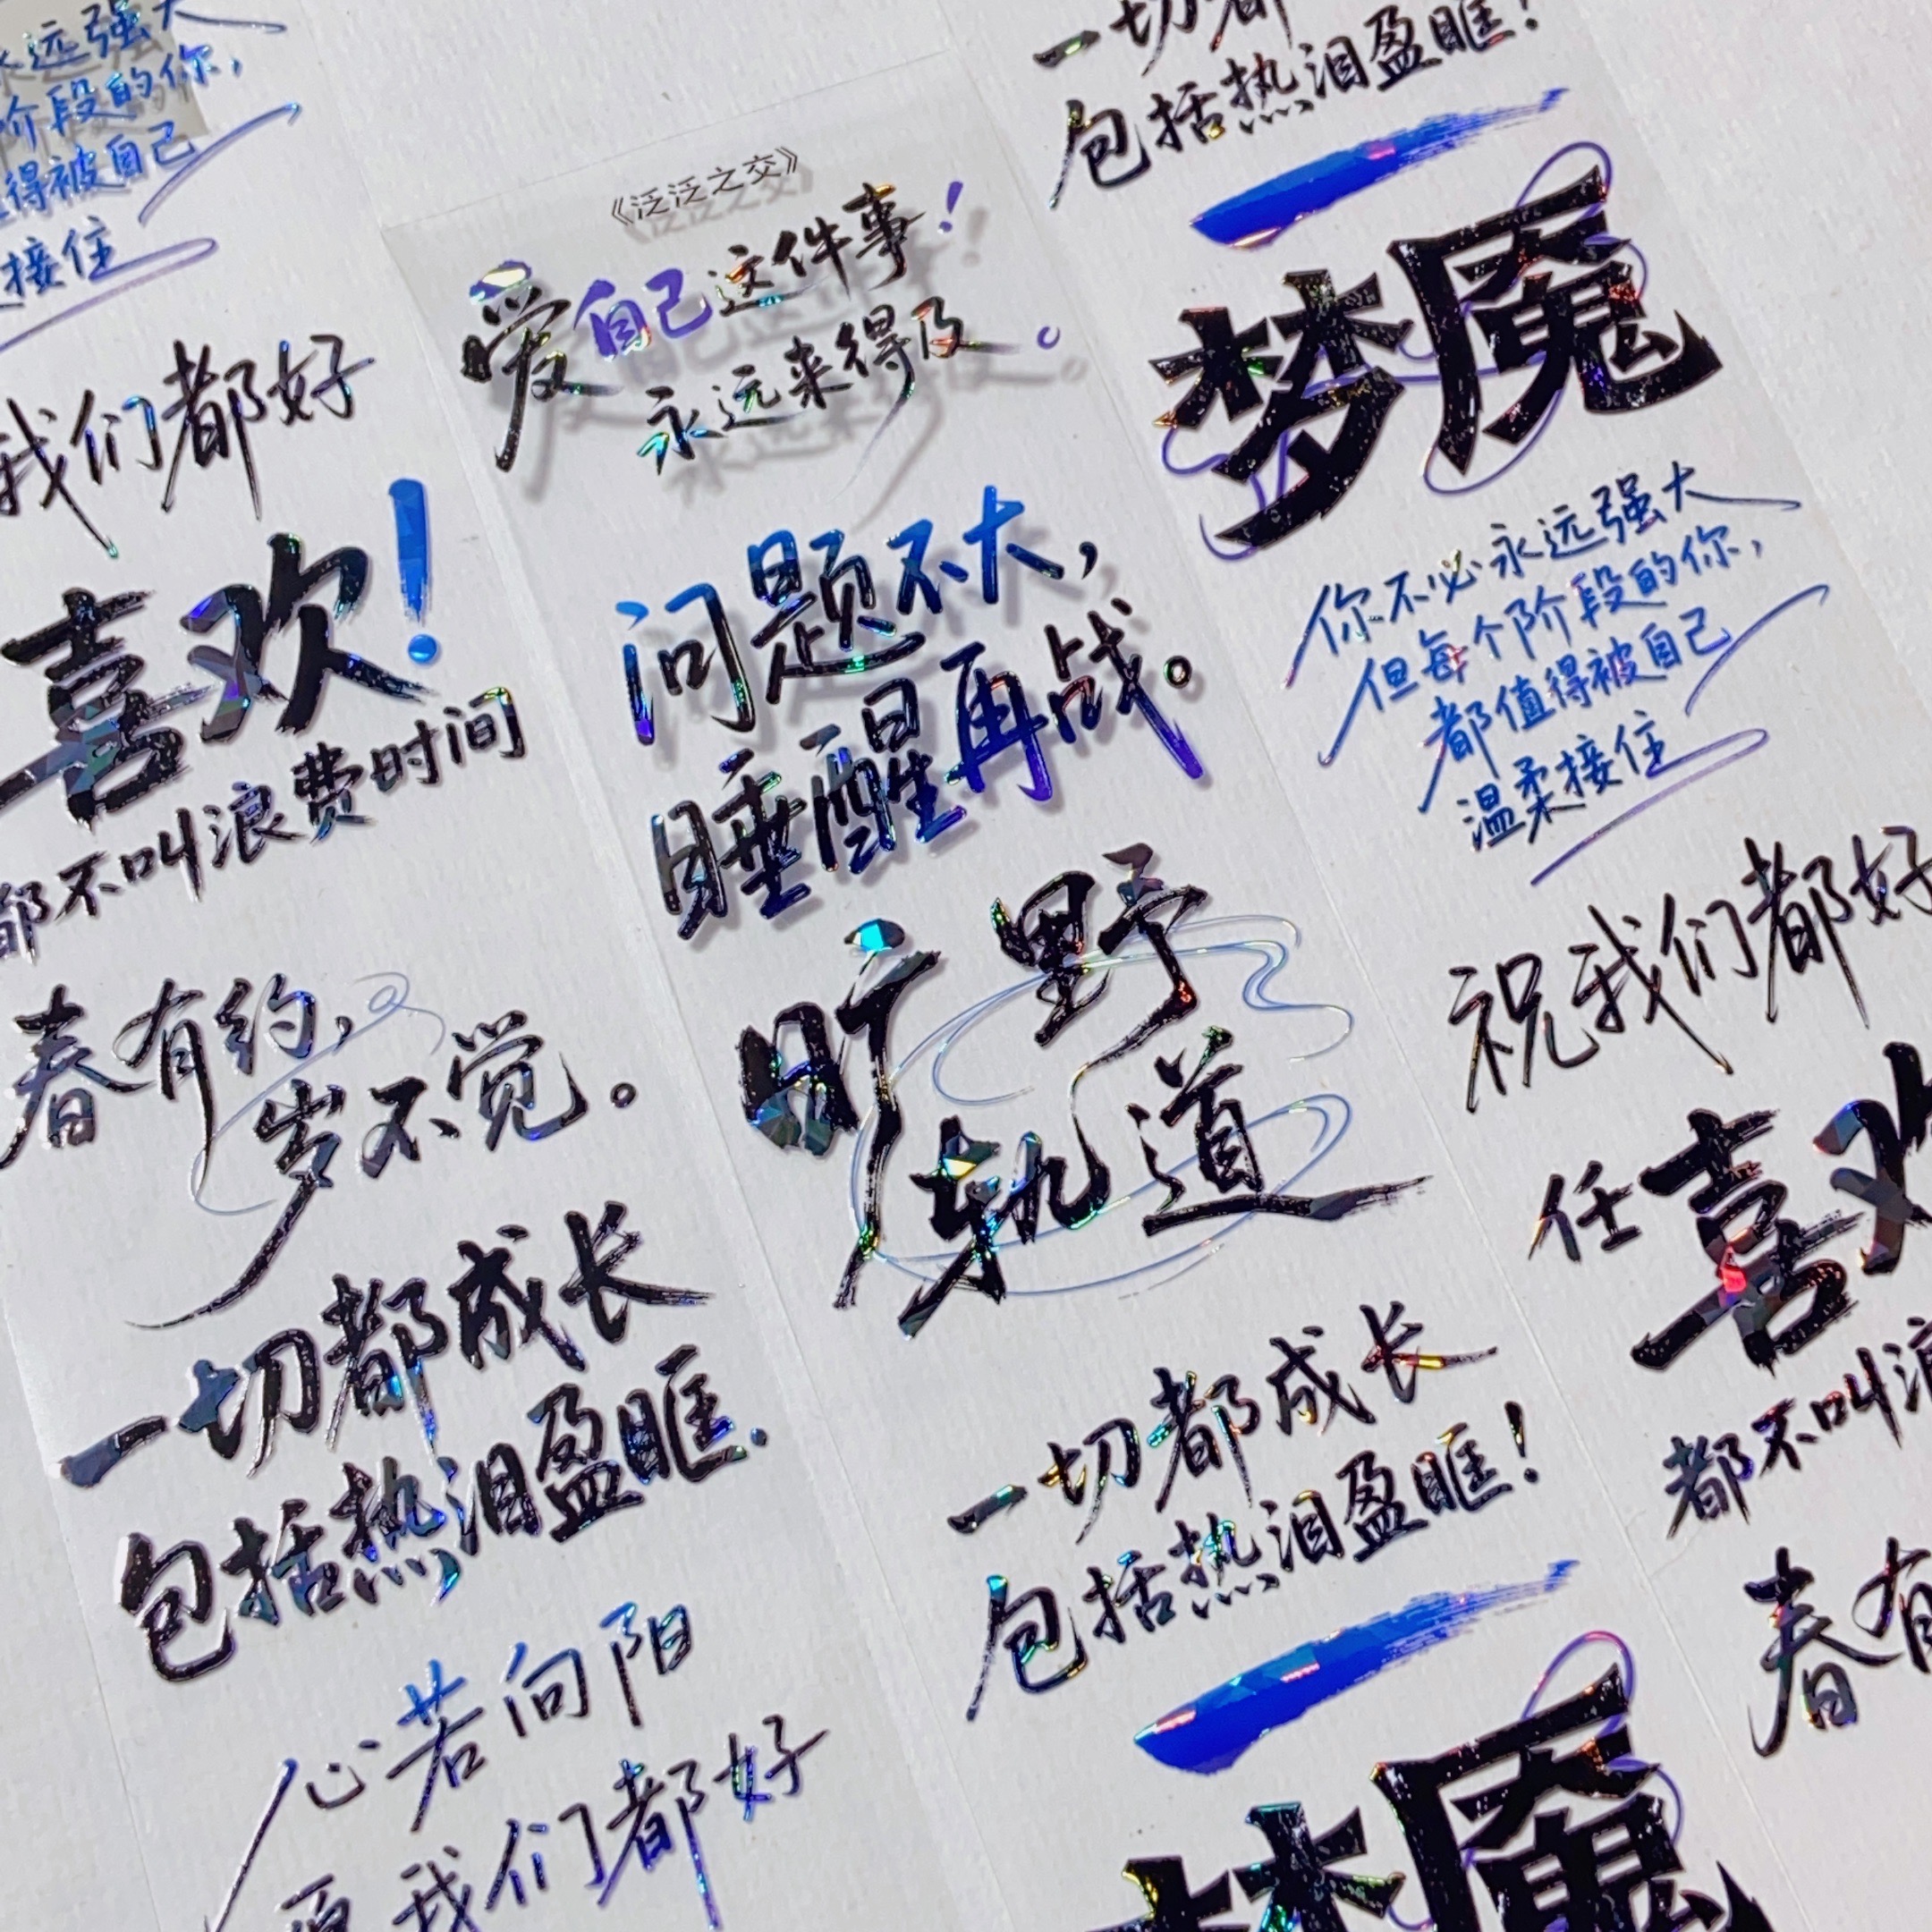 永远强大
阶段的你，
得被自己
接住
我们都好
喜欢！
都不叫浪费时间
春有约，
岁不觉。
一切都成长
包括热泪盈眶.
心若向阳
愿我们都好
《泛泛之交》
爱自己这件事！
永远来得及。
问题不大，
睡醒再战。
旷野
轨道
一切都成长
包括热泪盈眶！
梦魇
一切都
包括热泪盈眶！
梦魇
你不必永远强大
但每个阶段的你，
都值得被自己
温柔接住
祝我们都好
任喜欢
都不叫浪
春有